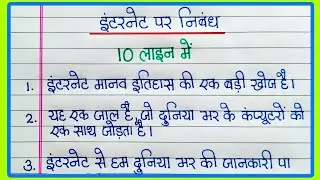 इंटरनेट पर निबंध
10 लाइन में
1. इंटरनेट मानव इतिहास की एक बड़ी खोज है।
2. यह एक जाल है, जो दुनिया भर के कंप्यूटरों को
एक साथ जोड़ता है।
3. इंटरनेट से हम दुनिया भर की जानकारी पा